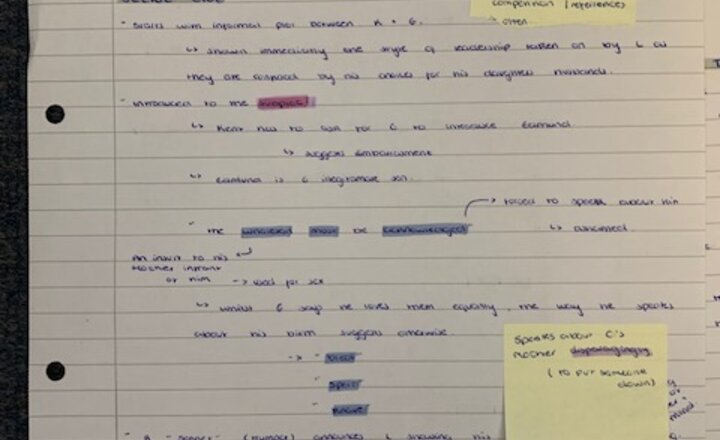 competition (references)
often
- starts with informal plot between K + G.
↳ shown immediately the style of leadership taken on by L as
they are confused by his choices for his daughters husbands.
- introduced to the subplot!
↳ Kent has to ask for G to introduce Edmund
↳ suggests embarrassment
↳ Edmund is G illegitimate son.
→ forced to speak about him
" the whoreson must be acknowledged
↳ ashamed
An insult to his
mother in front
of him → used for sex
↳ whilst G says he loves them equally, the way he speaks
about his birth suggests otherwise.
Speaks about E's
mother disparagingly
(to put someone
down)
→ "
" sport
" knave
- A "sennet" (trumpet) announces L showing his